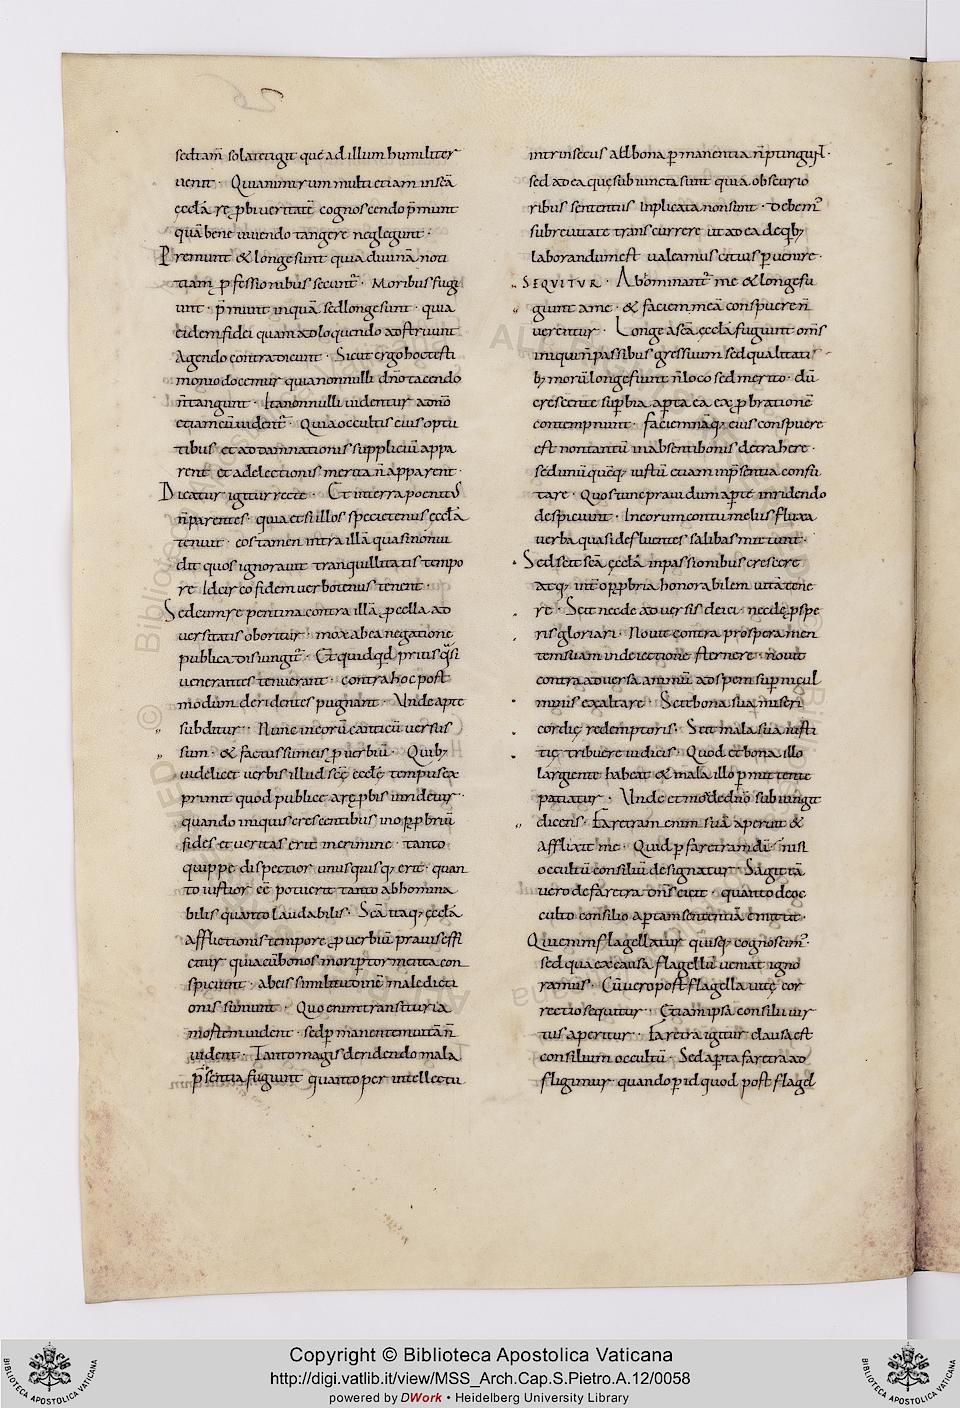 sed tam̄ sola tetigit quę ad illum humiliter
uenit · Quia nimirum multi etiam in scā
ęcclā rep̱bi ueritatē cognoscendo p̄munt
quā bene uiuendo tangere neglegunt ·
Premunt & longe sunt quia diuinā noti
tiam p̱fessionibus secunt͛ · Moribus fugi
unt · p̄munt inquā sed longe sunt · quia
eidem fidei quam ad loquendo adstruunt
Agendo contradicunt · Sicut ergo hoc testi
monio docemur quia nonnulli dn̄o tacendo
n̄ tangunt · Ita nonnulli uidentur a dn̄o
etiam cū uident͛ · Quia occultis eius optu
tibus et ad damnationis suppliciū appa
rent et ad electionis merita n̄ apparent ·
Dicatur igitur recte · Et in terra poenitꝰ
n̄ parentes · quia etsi illos specietenus ęcclā
tenuit · eos tamen intra illā quasi non ui
dit quos ignorauit tranquillitatis tempo
re Idcirco fidem uerbotenus tenent ·
Sed cum repentina contra illā p̱cella ad
uersitatis oboritur · mox ab ea negatione
publica disiungit͛ · Et quid qd̄ prius qͣsi
uenerantes tenuerant · contra hoc post
modum deridentes pugnant · Unde apte
subditur · Nunc in eorū canticū uersus
sum · & factus sum eis p̱uerbiū · Quib;
uidelicet uerbis illud scę ecclę tempus ex
primit quod publice a rep̱bis inridetur ·
quando iniquis crescentibus in op̱p̱briū
fides et ueritas erit in crimine · tanto
quippe dispectior unusquisq; erit · quan
to iustior eē potuerit tanto abhomina
bilis quanto laudabilis · Scā itaq; ęcclā
afflictionis tempore p̱uerbiū prauis effi
citur quia cū bonos mori p̱ tormenta con
spiciunt · ab eis similitudinē maledicti
onis sumunt · Quo enim transituria
mostem uident · sed p̱manentem uitā n̄
uident · Tanto magis deridendo mala
p̄sentia fugiunt quanto per intellectū
intrinsecus ad bona p̱manentia n̄ ptingun̄t ·
sed ad ea quę subiuncta sunt quia obscurio
ribus sententiis inplicata non sunt · Debem͛
sub reuitate transcurrere ut ad ea de qb;
laborandum est ualeamus citius p̱uenire ·
SEQUITUR · Abominant͛ me & longe fu
giunt a me · & faciem meā conspuere n̄
uerentur · Longe a scā ęcclā fugiunt om̄s
iniqui n̄ passibus gressuum sed qualitati
b; morū longe fiunt n̄ loco sed merito · dū
crescente sup̱bia ap̱ta ea exp̱brationē
contempnunt · faciem naq; eius conspuere
est non tantū in absentib; onis detrahere ·
sed unū quēq; iustū etiam in p̄sentia confu
tare · Quos tunc praui dum ap̱te inridendo
despiciunt · In eorum contumelus fluxa
uerba quasi defluentes salibas mittunt ·
Sed scit scā ęcclā in passionibus crescere
atq; int̄ op̱p̱bria honorabilem uitā tene
re · Scit nec de aduersis deici · nec dę p̱spe
ris gloriari · Nouit contra prospera men
tem suam in deiectione sternere · nouit
contra aduersa animū ad spem sup̱ni cul
minis exaltare · Scit bona sua miseri
cordię redemptoris · Scit mala sua iusti
tię tribuere iudicis · Quod et bona illo
largiente habeat & mala illo p̱mittente
patiatur · Unde et mox de dn̄o subiungit
dicens · Faretram enim suā aperuit &
afflixit me · Quid p̱ faretram dī · nisi
occultū consiliū designatur · Sagittā
uero de faretra dn̄s eicit · quando de oc
culto consilio ap̱tam sententiā emittit ·
Quia enim flagellatur quisq; cognoscim͛ ·
sed qua ex causa flagellū ueniat igno
ramus · Cū uero post flagella uitę cor
rectio sequitur · Etiam ipsā consilii uir
tus aperitur · Faretra igitur clausa est
consilium occultū · Sed ap̱ta faretra ad
fligimur · quando p̱ id quod post flagel